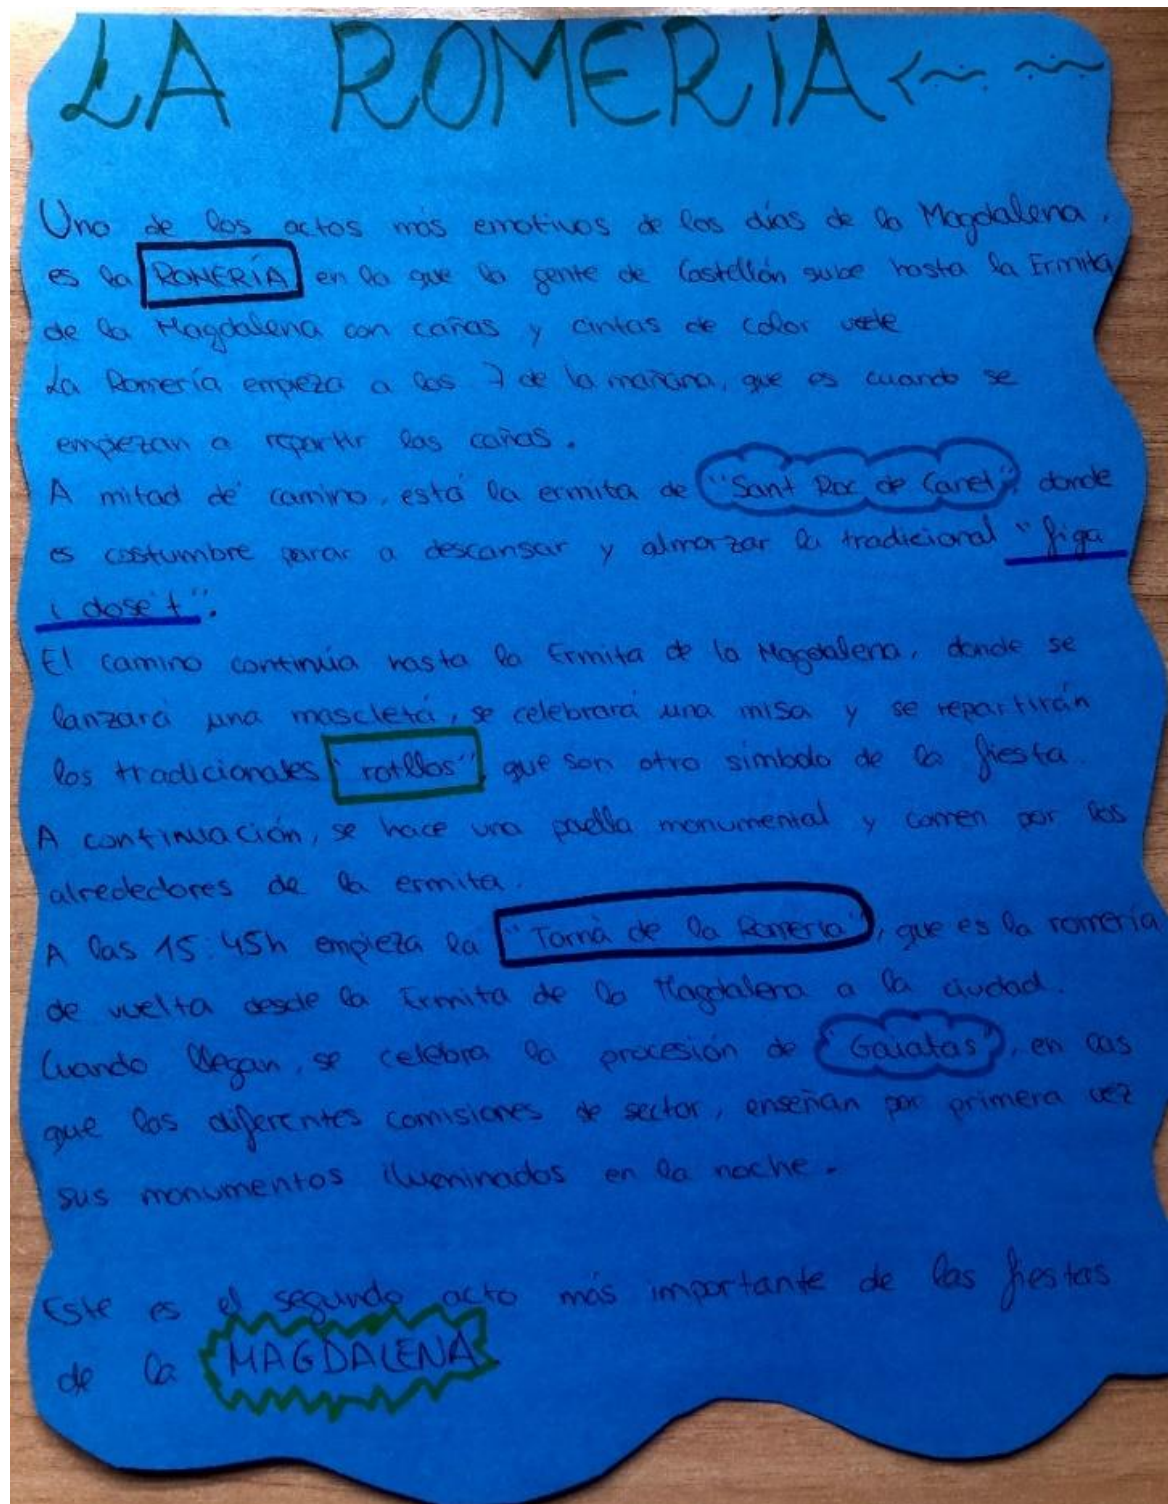 LA ROMERÍA
Uno de los actos más emotivos de los días de la Magdalena,
es la ROMERÍA en la que la gente de Castellón sube hasta la Ermita
de la Magdalena con cañas y cintas de color verde
La Romería empieza a las 7 de la mañana, que es cuando se
empiezan a repartir las cañas.
A mitad de camino, está la ermita de "Sant Roc de Canet", donde
es costumbre parar a descansar y almorzar la tradicional "figa
i dose't".
El camino continúa hasta la Ermita de la Magdalena, donde se
lanzará una mascletá, se celebrará una misa y se repartirán
los tradicionales "rotllos" que son otro símbolo de la fiesta.
A continuación, se hace una paella monumental y comen por los
alrededores de la ermita.
A las 15:45h empieza la "Tornà de la Romeria", que es la romería
de vuelta desde la Ermita de la Magdalena a la ciudad.
Cuando llegan, se celebra la procesión de "Gaiatas", en las
que las diferentes comisiones de sector, enseñan por primera vez
sus monumentos iluminados en la noche.
Este es el segundo acto más importante de las fiestas
de la MAGDALENA